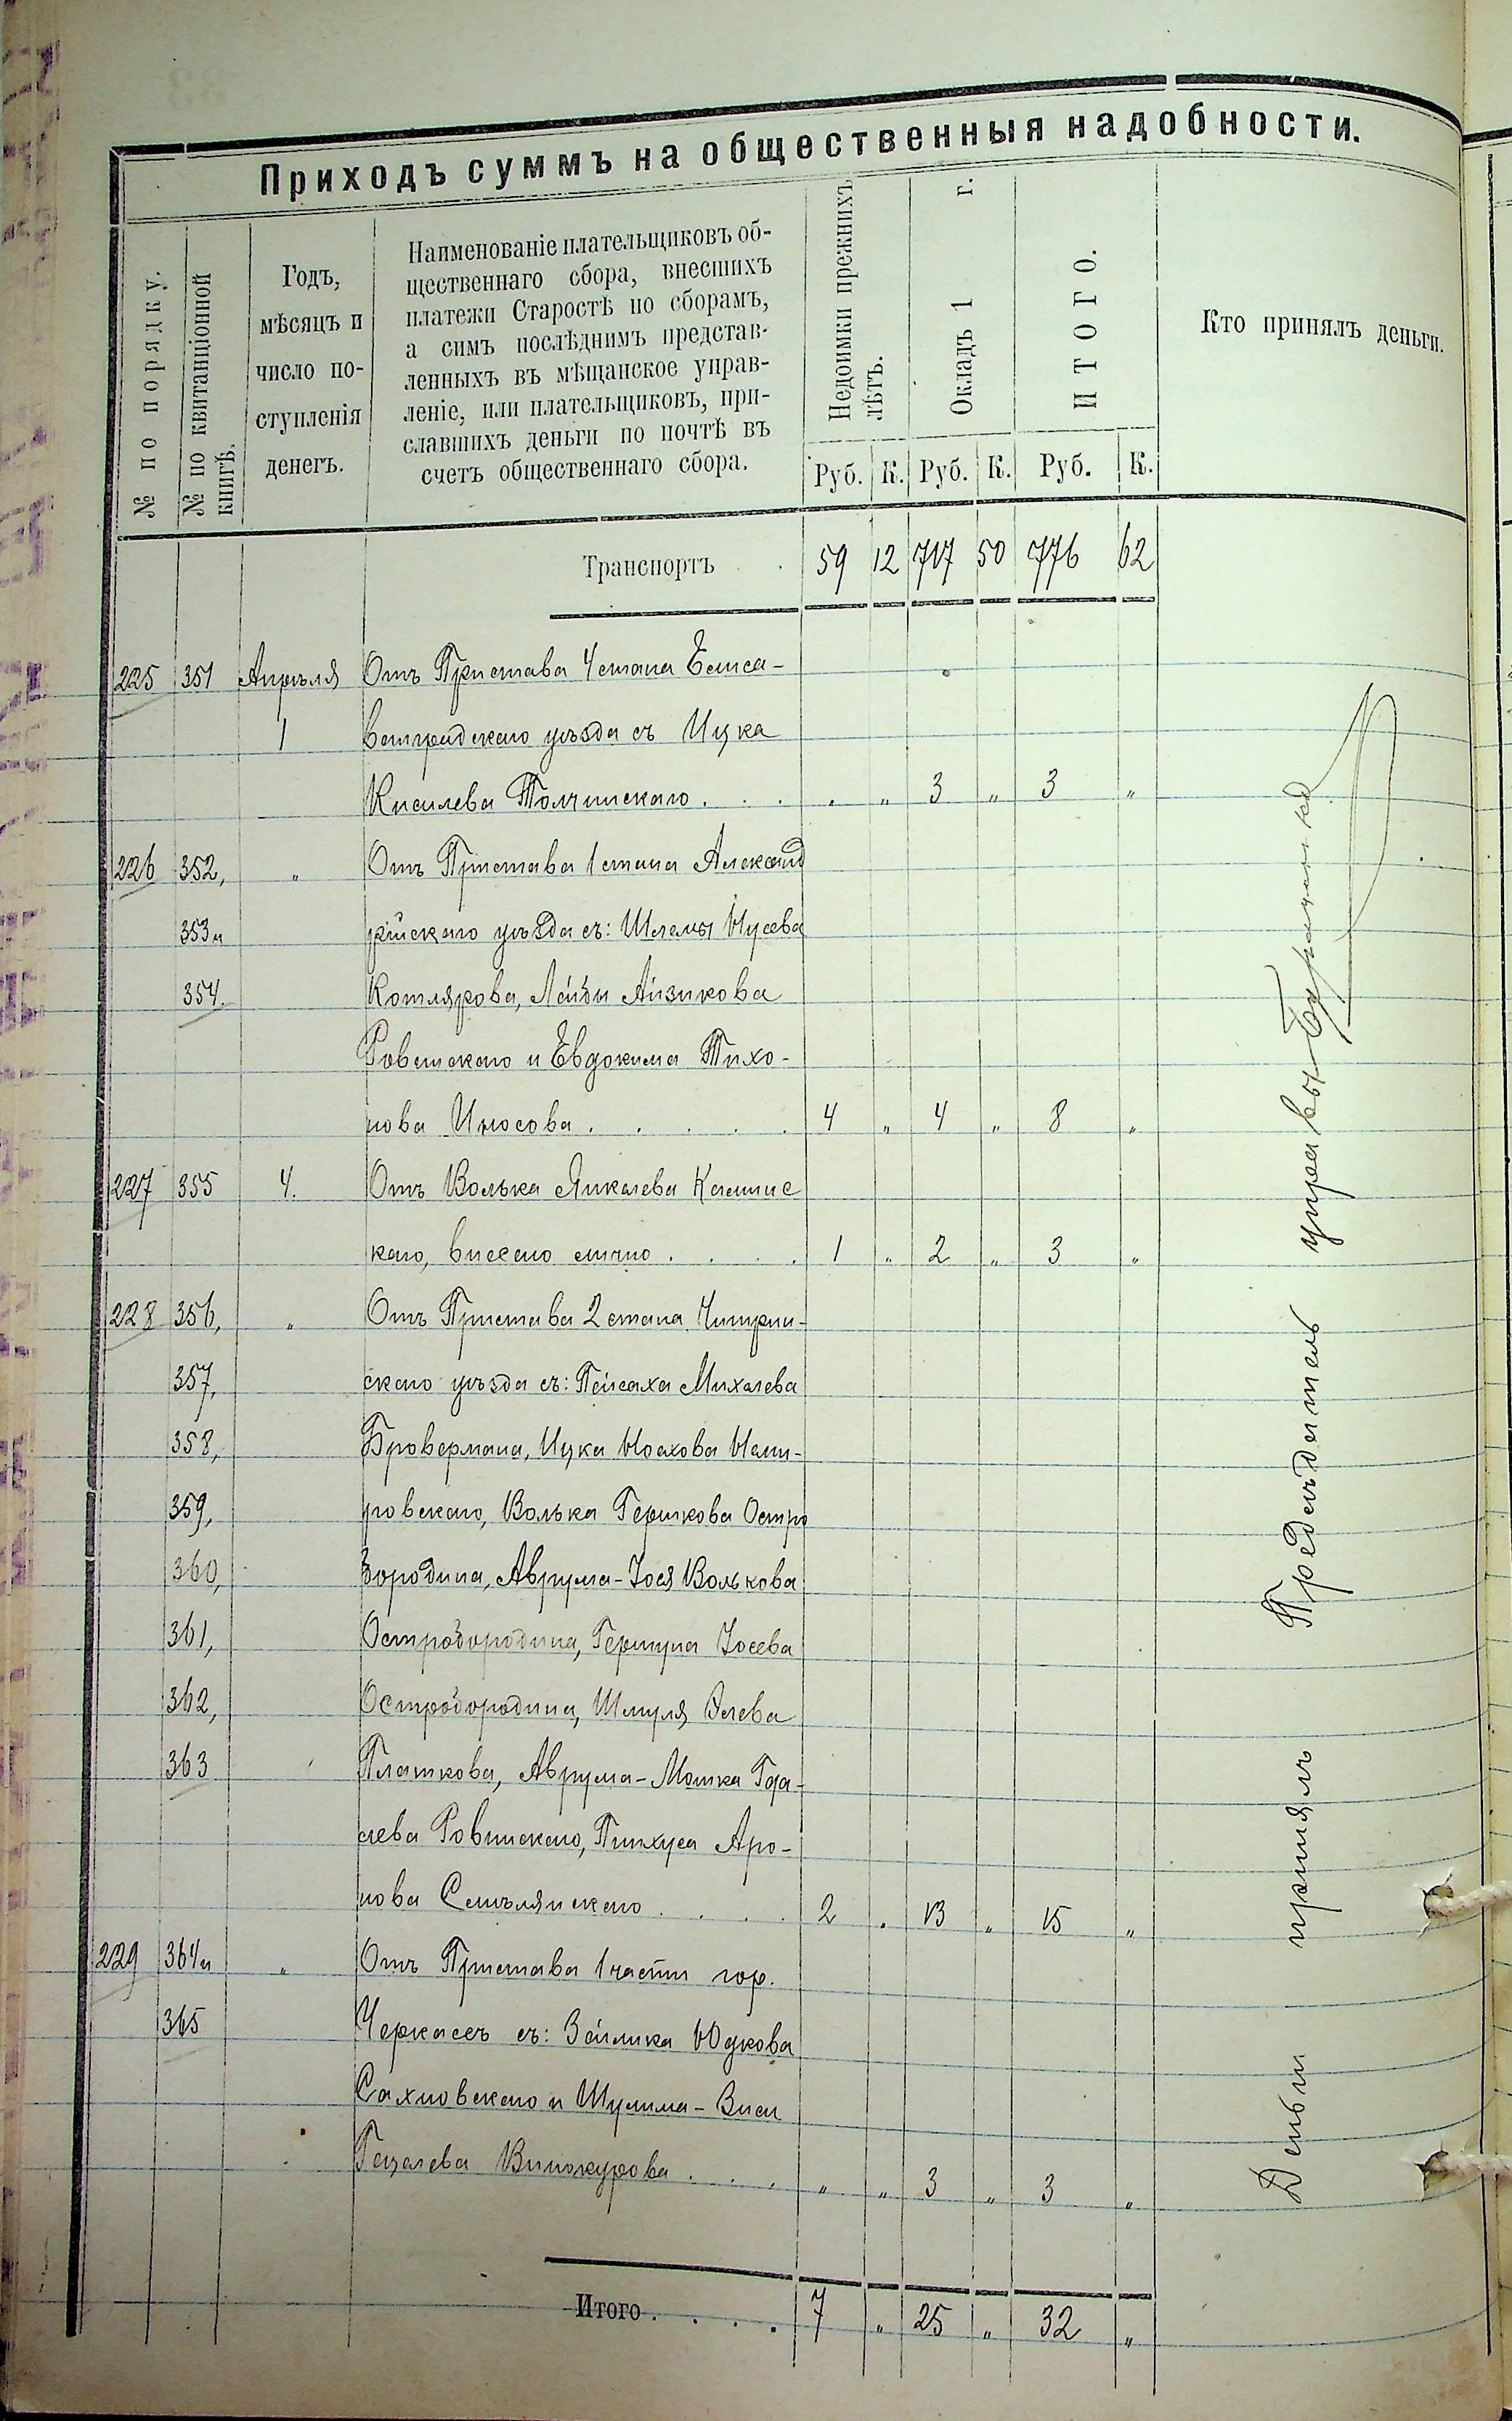 Приходъ суммъ на общественныя надобности.
№ по порядку.
№ по квитанціонной
книгѣ.
Годъ,
мѣсяцъ и
число по-
ступленія
денегъ.
Наименованіе плательщиковъ об-
щественнаго сбора, внесшихъ
платежи Старостѣ по сборамъ,
а симъ послѣднимъ представ-
ленныхъ въ мѣщанское управ-
леніе, или плательщиковъ, при-
славшихъ деньги по почтѣ въ
счетъ общественнаго сбора.
Недоимки прежнихъ
лѣтъ.
Окладъ 1 г.
ИТОГО.
Кто принялъ деньги.
Руб. К. Руб. К. Руб. К.
Транспортъ . 59 12 717 50 776 62
225 351 Апрѣля Отъ Пристава 4 стана Елиса-
1 ветградскаго уѣзда съ Ицка
Кисилева Толчинскаго . . . „ „ 3 „ 3 „
226 352, „ Отъ Пристава 1 стана Александ
353 и рійскаго уѣзда съ: Шлемы Иусева
354. Котлярова, Лейбы Айзикова
Ровенскаго и Евдокима Тихо-
нова Иносова . . . . . 4 „ 4 „ 8 „
227 355 4. Отъ Волька Янкелева Каминс
каго, внесено лично . . . . 1 „ 2 „ 3 „
228 356, „ Отъ Пристава 2 стана Чигрин-
357, скаго уѣзда съ: Пейсаха Михелева
358, Бровермана, Ицка Ноахова Неми-
359, ровскаго, Волька Гершкова Остро
360, бородина, Аврума-Іося Волькова
361, Остробородина, Гершуна Іосева
362, Остробородина, Шмуля Велева
363 Платкова, Аврума-Мошка Гда-
лева Ровинскаго, Пинхуса Аро-
нова Смѣлянскаго . . . . 2 „ 13 „ 15 „
229 364 и „ Отъ Пристава 1 части гор.
365 Черкасъ съ: Зейлика Юдкова
Сахновскаго и Шулима-Зиси
Гецелева Винокурова . . . „ „ 3 „ 3 „
Итого . . . . 7 „ 25 „ 32 „
Деньги принялъ Предсѣдатель управы